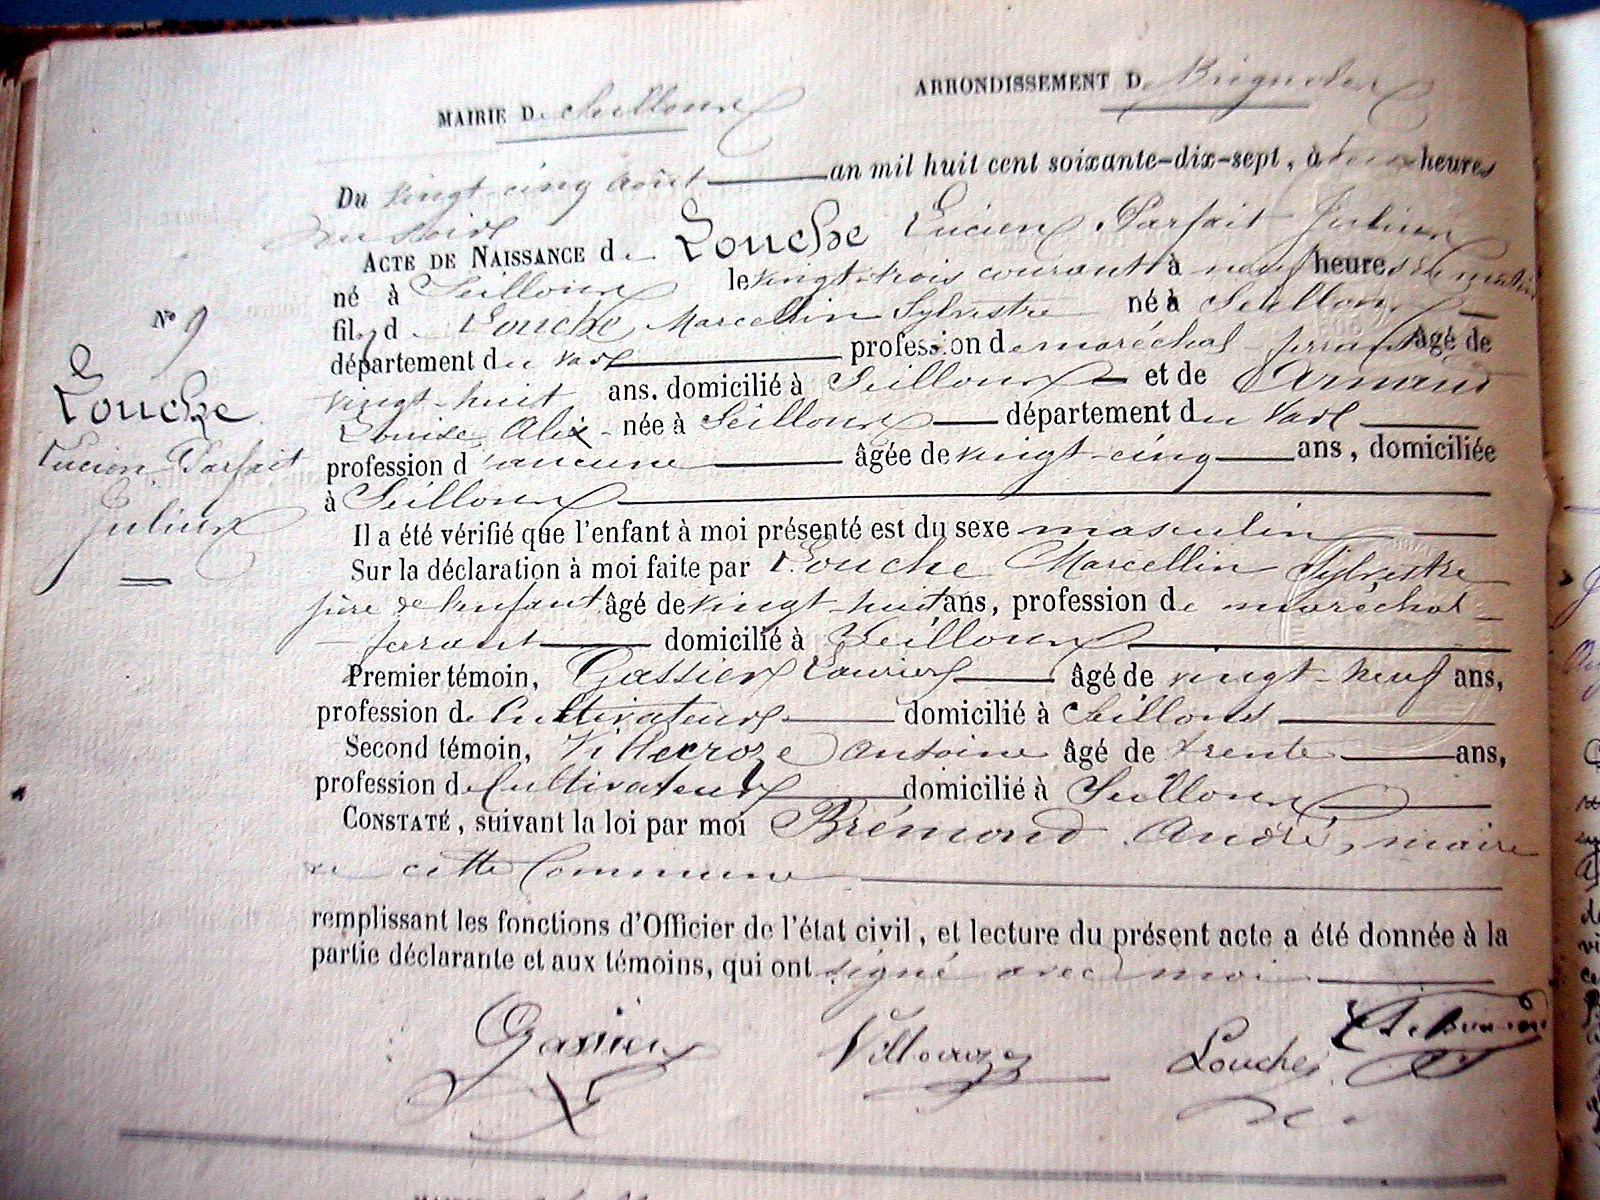 MAIRIE De Seillons
ARRONDISSEMENT De Brignoles
Du vingt-cinq août an mil huit cent soixante-dix-sept, à heures
du soir
ACTE DE NAISSANCE de Louche Lucien Parfait Julien
né à Seillons le vingt-trois courant à neuf heures du matin
fils de Louche Marcellin Sylvestre né à Seillons
département du Var profession de maréchal-ferrant âgé de
vingt-huit ans, domicilié à Seillons et de Arnaud
Louise Alix née à Seillons département du Var
profession d'aucune âgée de vingt-cinq ans, domiciliée
à Seillons
Il a été vérifié que l'enfant à moi présenté est du sexe masculin
Sur la déclaration à moi faite par Louche Marcellin Sylvestre
père de l'enfant âgé de vingt-huit ans, profession de maréchal-
ferrant domicilié à Seillons
Premier témoin, Gassier âgé de vingt-neuf ans,
profession de Cultivateur domicilié à Seillons
Second témoin, Villecroze Antoine âgé de trente ans,
profession de Cultivateur domicilié à Seillons
CONSTATÉ, suivant la loi par moi Brémond André, maire
de cette Commune
remplissant les fonctions d'Officier de l'état civil, et lecture du présent acte a été donnée à la
partie déclarante et aux témoins, qui ont signé avec moi
Gassier Villecroze Louche
No 9
Louche
Lucien Parfait
Julien